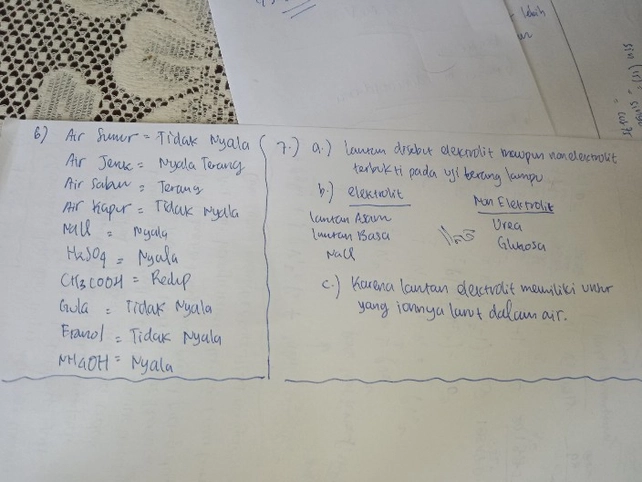 lebih
6) Air Sumur = Tidak Nyala
Air Jeruk = Nyala Terang
Air Sabun = Terang
Air Kapur = Tidak Nyala
NaCl = Nyala
H2SO4 = Nyala
CH3COOH = Redup
Gula = Tidak Nyala
Etanol = Tidak Nyala
NH4OH = Nyala
7.) a.) larutan disebut elektrolit maupun nonelektrolit
terbukti pada uji terang lampu
b.) elektrolit
larutan Asam
larutan Basa
NaCl
Non Elektrolit
Urea
Glukosa
c.) Karena larutan elektrolit memiliki unsur
yang ionnya larut dalam air.